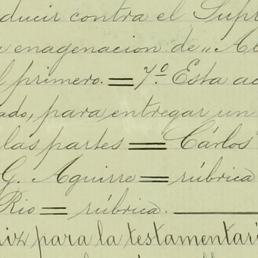 ducir contra el Supr
a enagenacion de "Au
l primero. = 7º Esta ac
ado, para entregar un
las partes = Cárlos
G. Aguirre = rúbrica
Rio = rúbrica.
ix para la testamentari